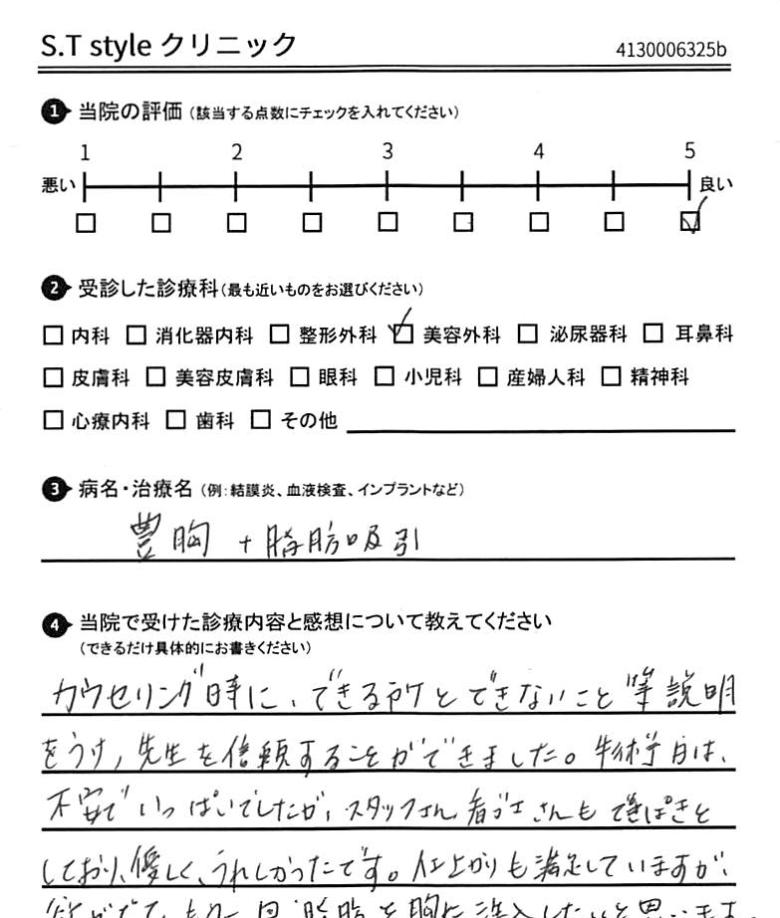 S.T style クリニック
4130006325b
1 当院の評価（該当する点数にチェックを入れてください）
1 2 3 4 5
悪い 良い
2 受診した診療科（最も近いものをお選びください）
内科 消化器内科 整形外科 美容外科 泌尿器科 耳鼻科
皮膚科 美容皮膚科 眼科 小児科 産婦人科 精神科
心療内科 歯科 その他
3 病名・治療名（例：結膜炎、血液検査、インプラントなど）
豊胸 + 脂肪吸引
4 当院で受けた診療内容と感想について教えてください
（できるだけ具体的にお書きください）
カウセリング時に、できる所とできないこと等説明
をうけ、先生を信頼することができました。手術当日は、
不安でいっぱいでしたが、スタッフさん、看ゴ士さんもてきぱきと
しており、優しく、うれしかったです。仕上がりも満足していますが、
欲がでて、もう一回、脂肪を胸に注入したいと思います。